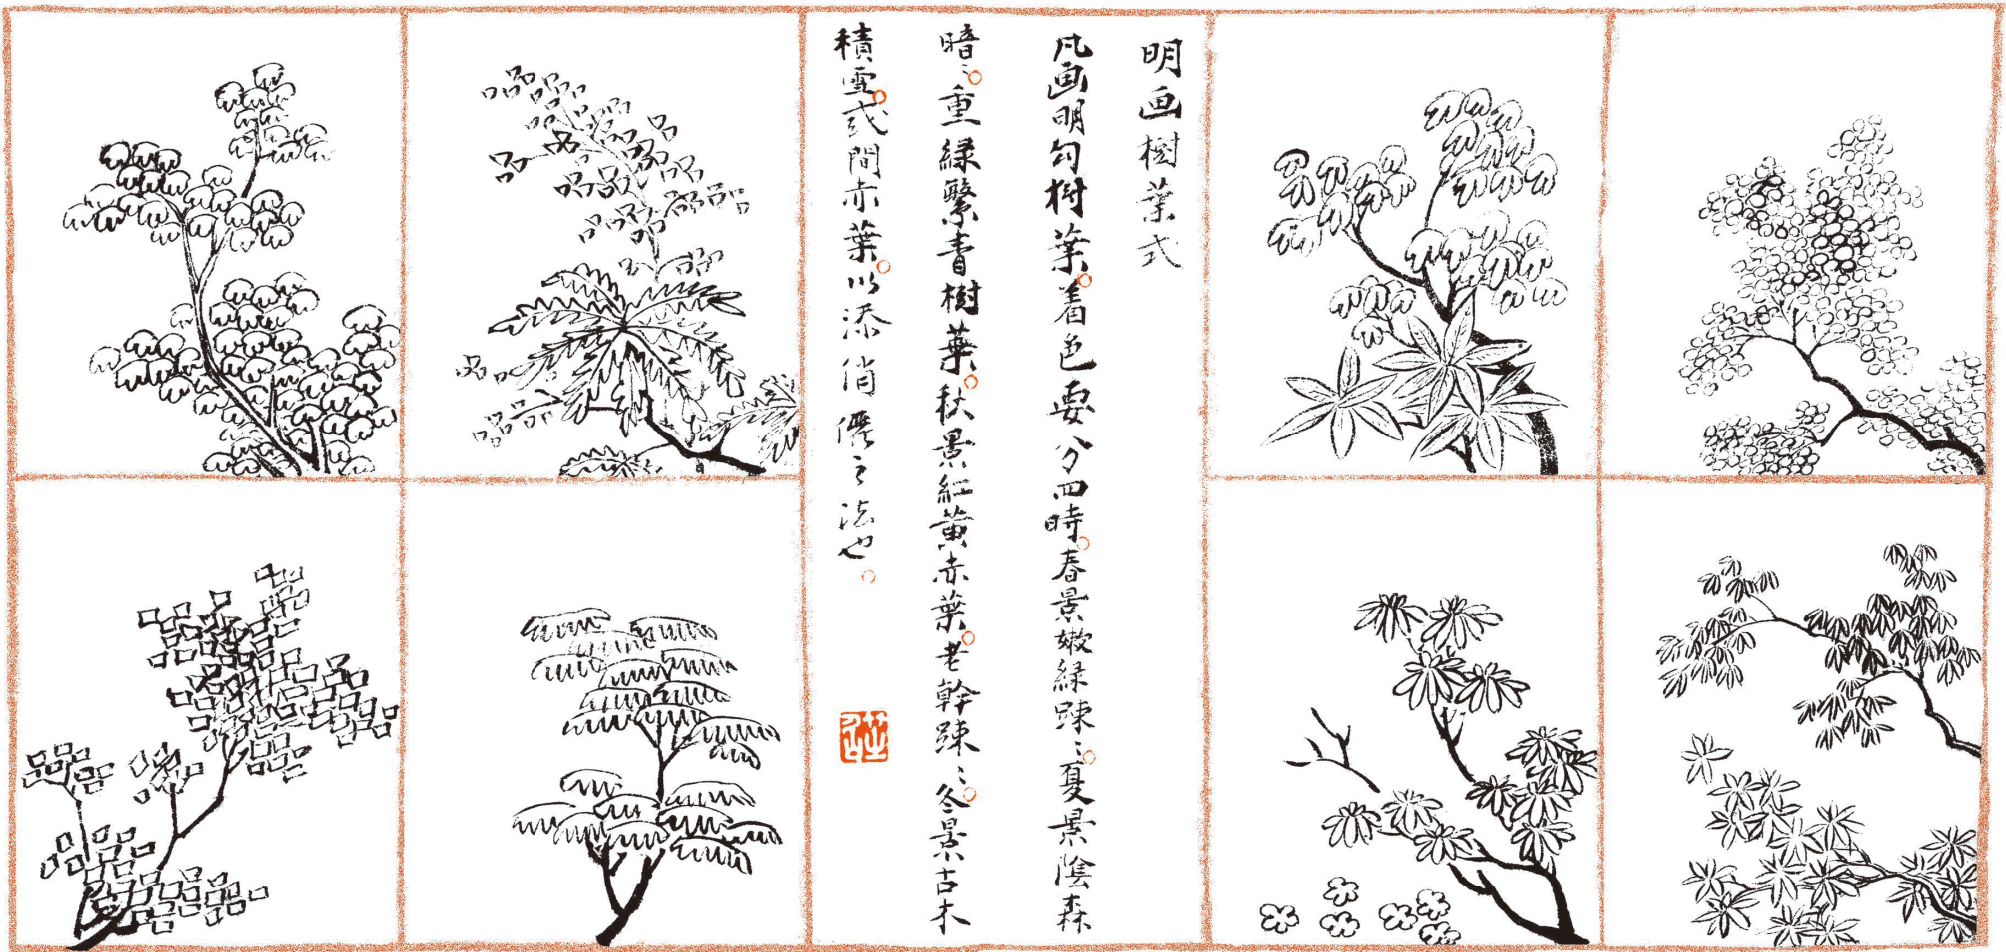 明画樹葉式
凡画明勾樹葉。着色要分四時。春景嫩緑踈〻。夏景陰森
暗〻。重緑繁青樹葉。秋景紅黄赤葉。老幹踈〻。冬景古木
積雪。或間赤葉。以添俏僊之法也。